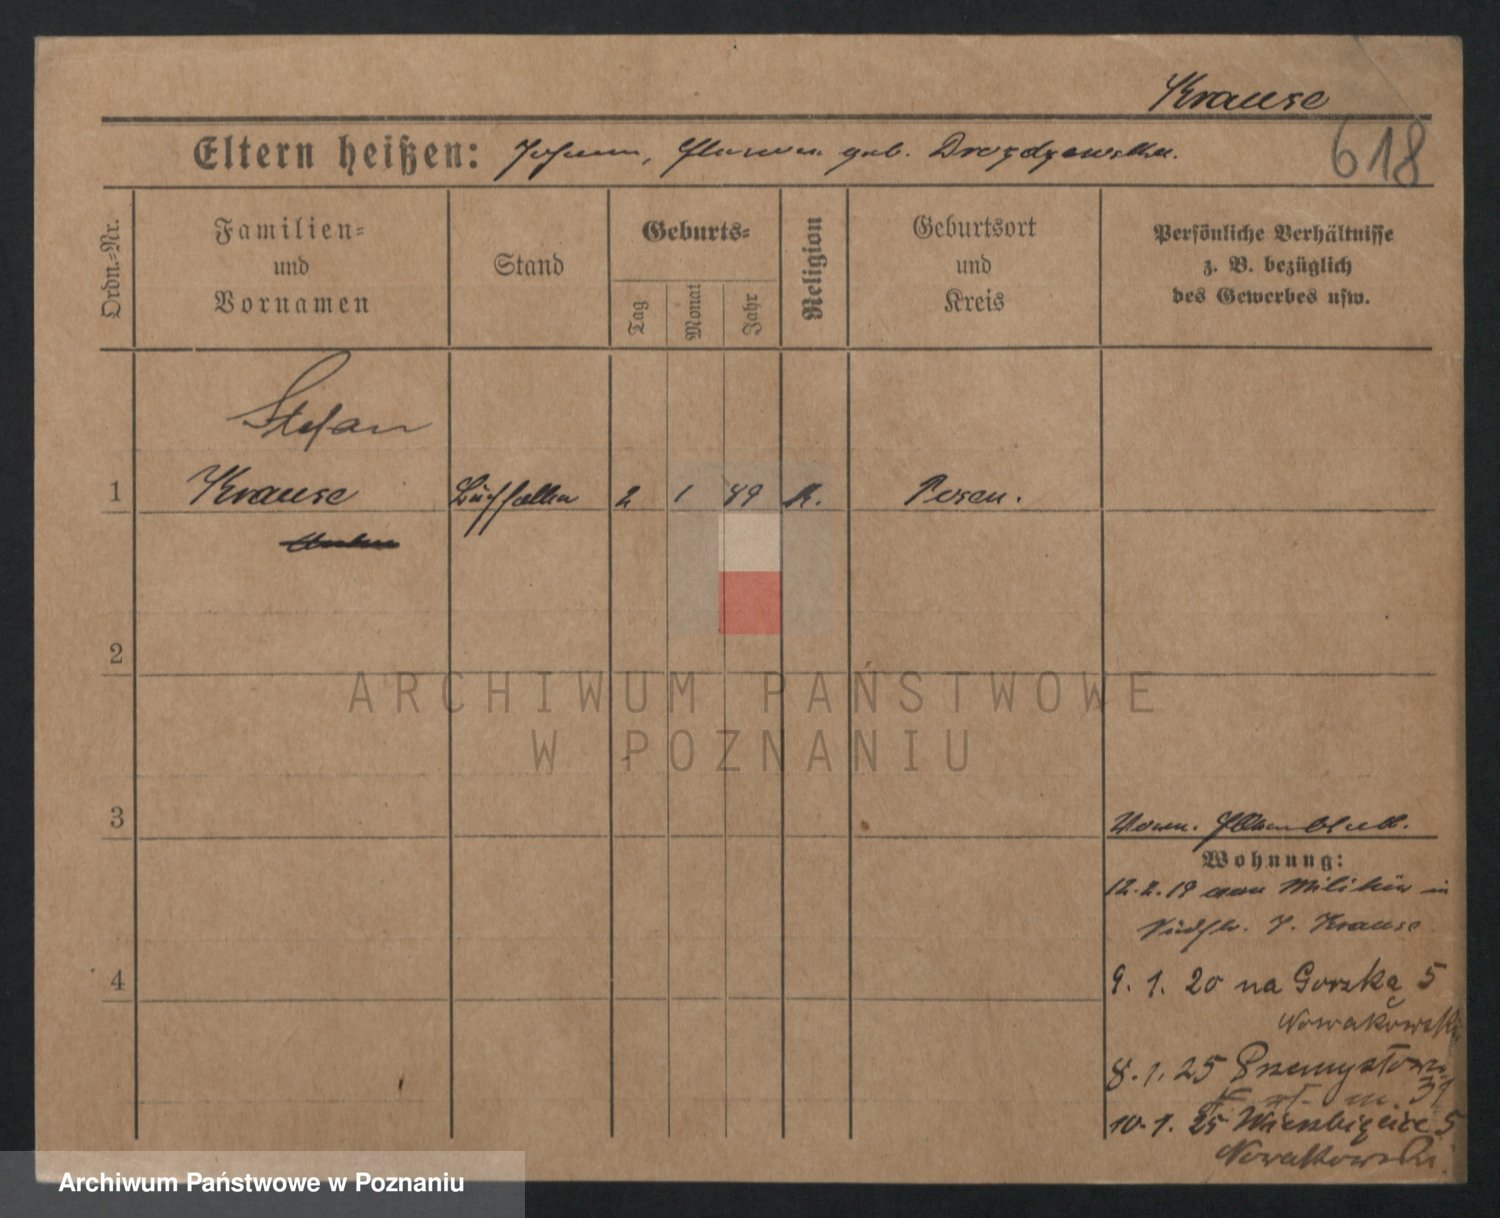 Krause
618
Eltern heißen: Johann, geb. Drozdzewska.
Ordn.-Nr.
Familien-
und
Vornamen
Stand
Geburts-
Tag
Monat
Jahr
Religion
Geburtsort
und
Kreis
Persönliche Verhältnisse
z. B. bezüglich
des Gewerbes usw.
Stefan
1 Krause 2 1 99 K. Posen.
2
3
Wohnung:
12.2.19 Militär in
J. Krause
4
9. 1. 20 na Gorzką 5
Nowakowski
8. 1. 25
31
10. 1. 25 Wierzbięcice 5
Nowakowski
ARCHIWUM PAŃSTWOWE
W POZNANIU
Archiwum Państwowe w Poznaniu